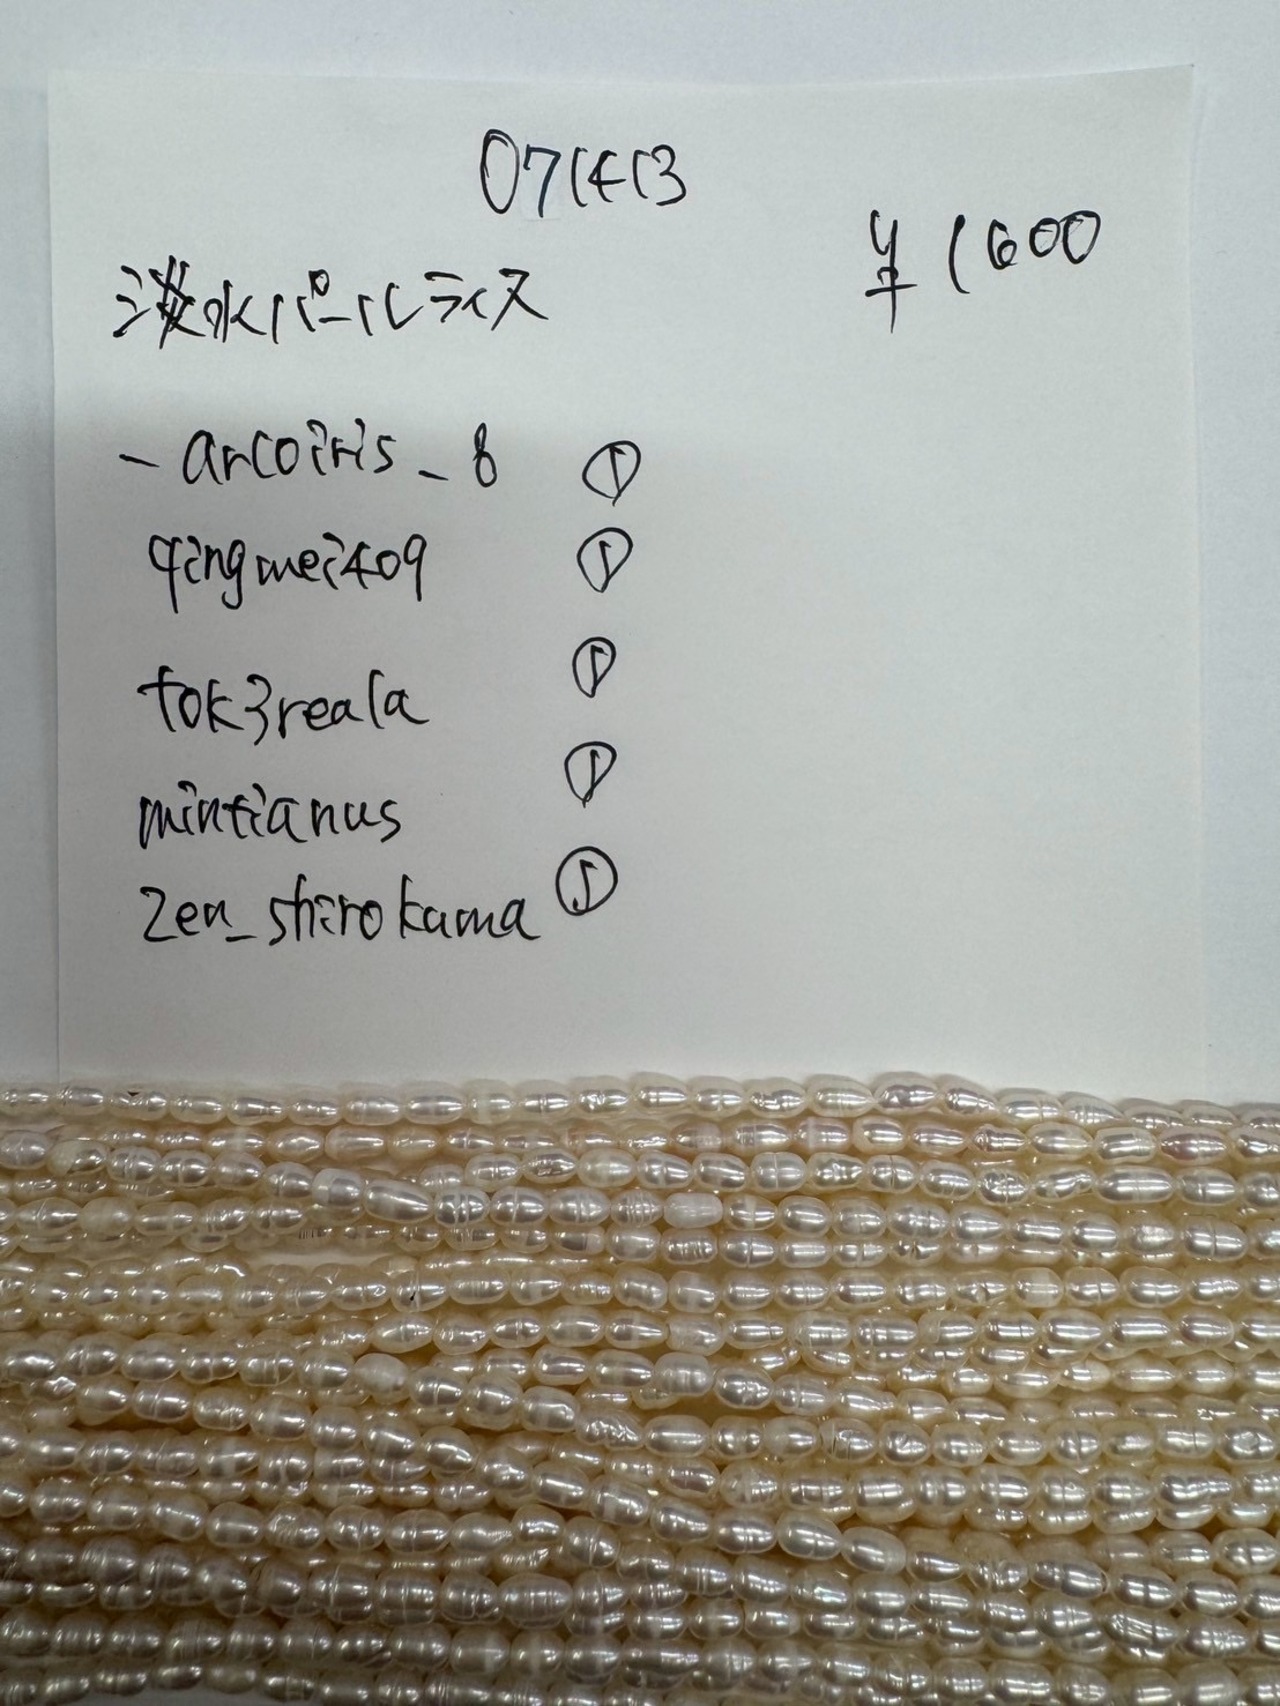 071413
¥1600
淡水パールライス
-arcoiris_8 ①
qingmei409 ①
tok3reala ①
mintianus ①
zen_shirokuma ①